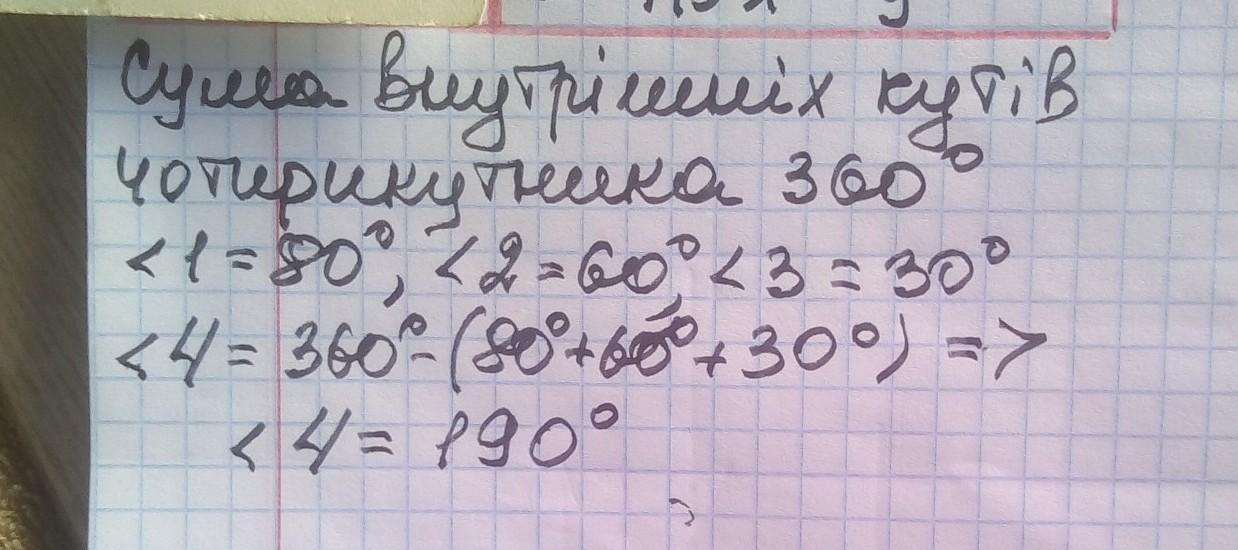 Сума внутрішніх кутів
чотирикутника 360°
<1=80°, <2=60°, <3=30°
<4=360°-(80°+60°+30°) =>
<4=190°